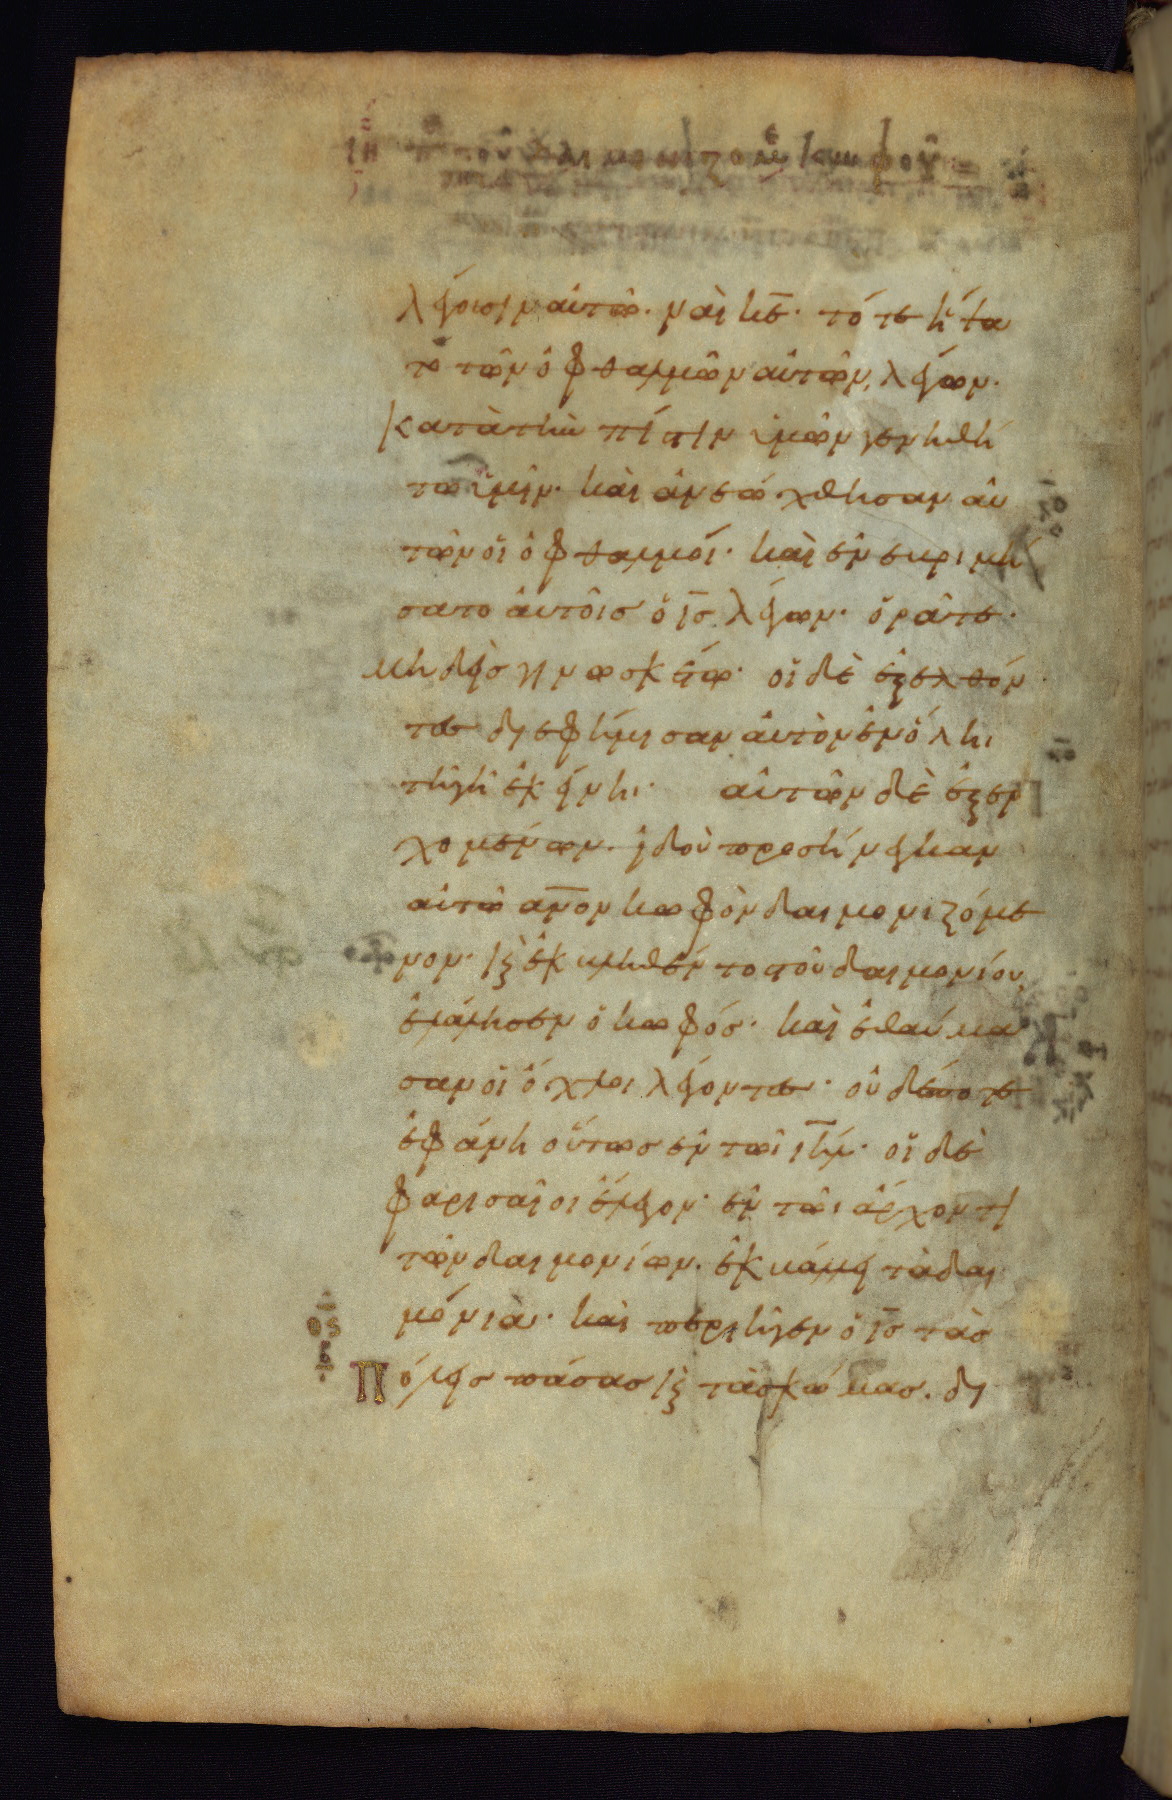 ιη π του δαιμονιζομε κωφου
λέγουσιν αὐτῶ· ναὶ κε· τότε ἥψα
το τῶν ὀφθαλμῶν αὐτῶν, λέγων·
κατὰ τὴν πίστιν ὑμῶν γενηθή
τω ὑμῖν· καὶ ἀνεώχθησαν αὐ
τῶν οἱ ὀφθαλμοί· καὶ ἐνεβριμή
σατο αὐτοῖσ ὁ ισ λέγων· ὁρᾶτε·
μηδεὶσ γινωσκέτω· οἱ δὲ ἐξελθόν
τεσ διεφήμισαν αὐτὸν ἐν ὅληι
τῆ γῆ ἐκείνηι· αὐτῶν δὲ ἐξερ
χομένων· ἰδοὺ προσήνεγκαν
αὐτῶ ανον κωφὸν δαιμονιζόμε
νον· κ̀ ἐκβληθέντοσ τοῦ δαιμονίου,
ἐλάλησεν ὁ κωφόσ· καὶ ἐθαύμα
σαν οἱ ὄχλοι λέγοντεσ· οὐδέποτε
ἐφάνη οὕτωσ ἐν τῶι ιηλ· οἱ δὲ
φαρισαῖοι ἔλεγον· ἐν τῶι ἄρχοντι
τῶν δαιμονίων· ἐκβάλλει τὰ δαι
μόνια· καὶ περιῆγεν ὁ ισ τὰσ
οε
β
πόλεισ πάσασ κ̀ τὰσ κώμασ· δι